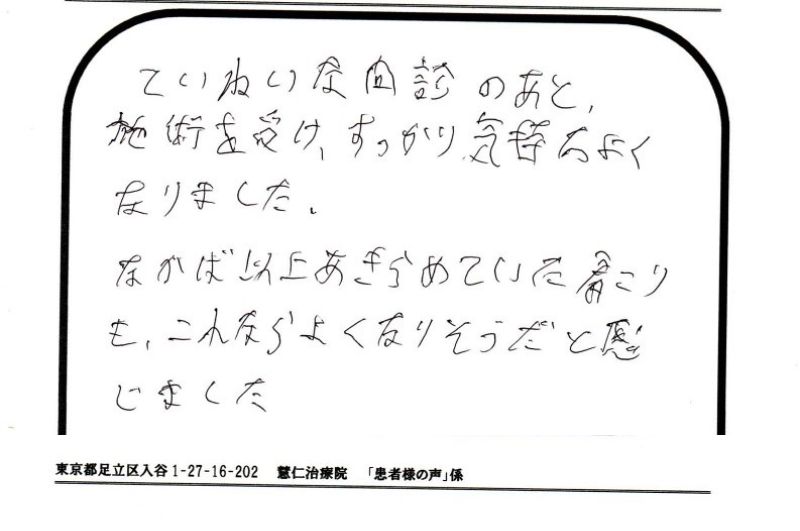 ていねいな問診のあと、
施術を受け、すっかり気持ちよく
なりました。
なかば以上あきらめていた肩こり
も、これならよくなりそうだと感
じました
東京都足立区入谷1-27-16-202 慧仁治療院 「患者様の声」係